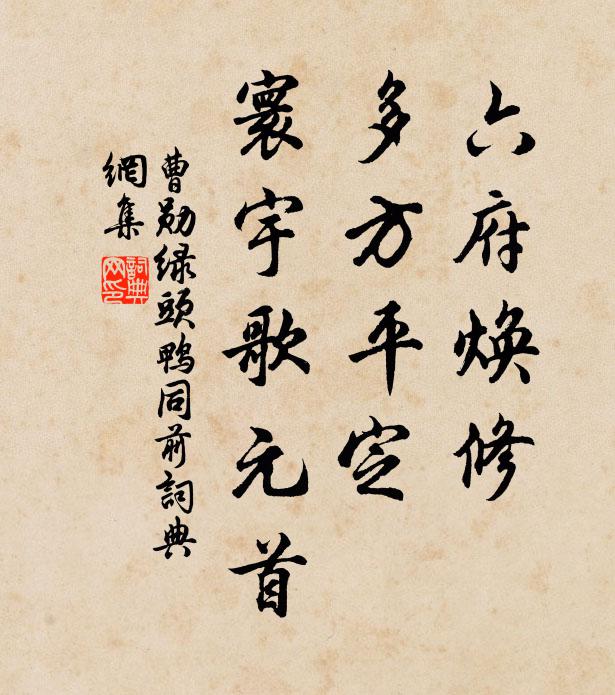 六府焕修
多方平定
寰宇歌元首
曹勋绿頭鸭同前詞典
網集
詞典
网印